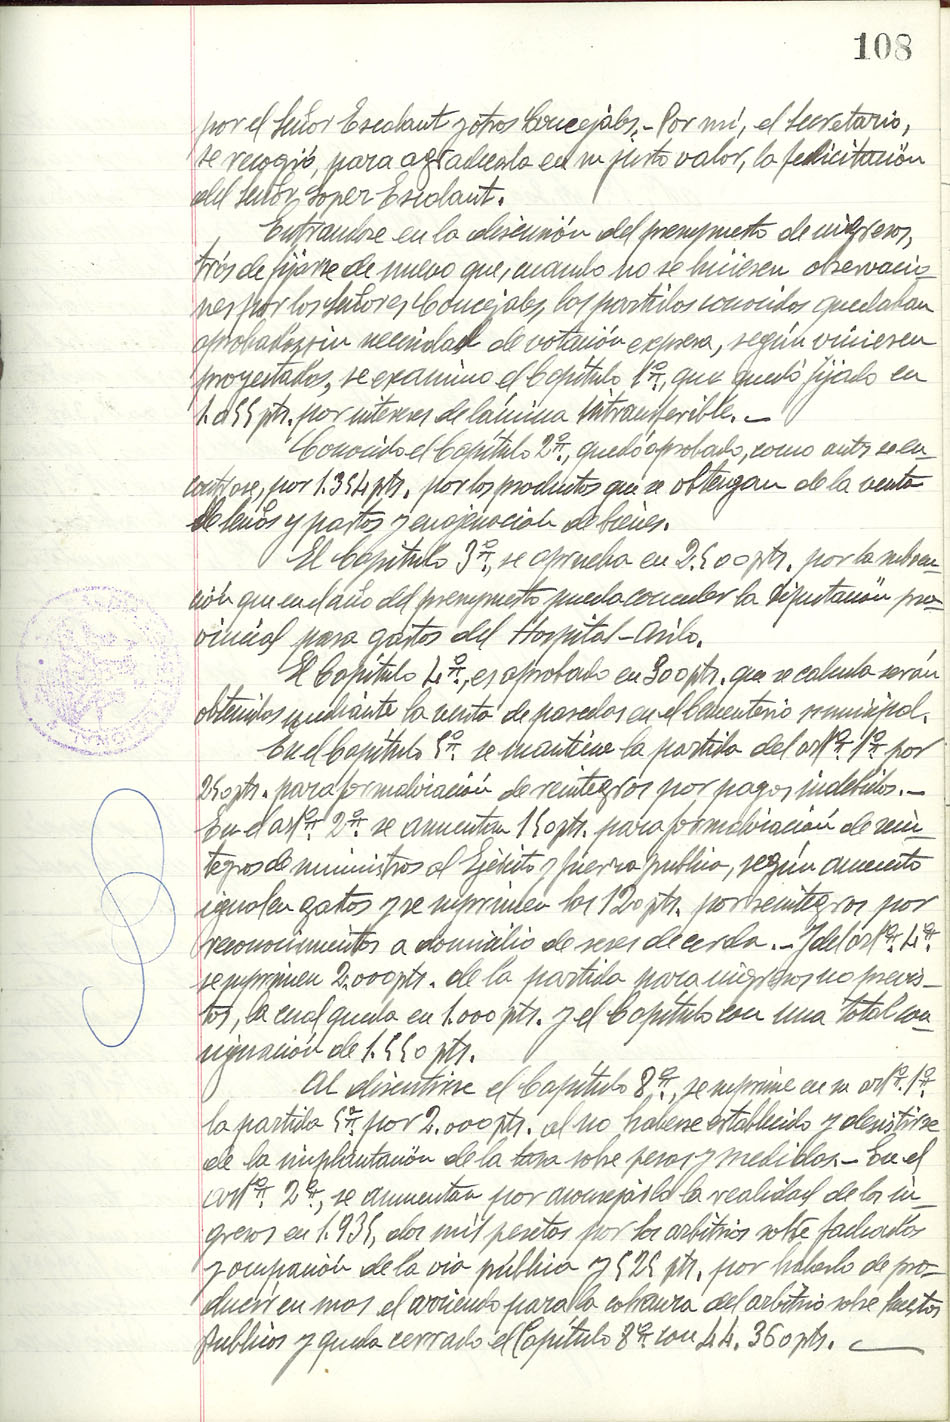 108
por el Señor Escalant y otros Concejales.- Por mí, el Secretario,
se recogió, para agradecerla en su justo valor, la felicitación
del Señor Soper Escalant.
Entrandose en la discusión del presupuesto de ingresos,
trás de fijarse de nuevo que, cuando no se hiciesen observacio-
nes por los Señores Concejales, las partidas conocidas quedaban
aprobadas, sin necesidad de votación expresa, según viniesen
proyectadas, se examino el Capítulo 1º, que quedó fijado en
por intereses de lámina intransferible.-
Conocido el Capítulo 2º, quedó aprobado, como antes se en-
contrase, por 1.354 pts. por los productos que se obtengan de la venta
de leñas y pastos y enajenación de bienes.
El Capítulo 3º, se aprueba en 2.500 pts. por la subven-
ción que en el año del presupuesto pueda conceder la Diputación pro-
vincial para gastos del Hospital-Asilo.
El Capítulo 4º, es aprobado en 300 pts. que se calcula serán
obtenidas mediante la venta de parcelas en el Cementerio municipal.
En el Capítulo 5º se mantiene la partida del artº 1º por
250 pts. para formalización de reintegros por pagos indebidos.-
En el artº 2º se aumentan 150 pts. para formalización de rein-
tegros de suministros al Ejército y fuerza publica, según aumento
igual en gastos y se suprimen las 120 pts. por reintegros por
reconocimientos a domicilio de reses de cerda.- Y del artº 4º
se suprimen 2.000 pts. de la partida para ingresos no previs-
tos, la cual queda en 1.000 pts. y el Capítulo con una total con-
signación de 1.550 pts.
Al discutirse el Capítulo 8º, se suprime en su artº 1º
la partida 5ª por 2.000 pts. al no haberse establecido y desistirse
de la implantación de la tasa sobre pesas y medidas.- En el
artº 2º, se aumentan por aconsejarlo la realidad de los in-
gresos en 1.935, dos mil pesetas por los arbitrios sobre fachadas
y ocupación de la vía pública y 525 pts. por haberlo de pro-
ducir en mas el arriendo para la cobranza del arbitrio sobre Puestos
Publicos y queda cerrado el Capítulo 8º con 44.360 pts.